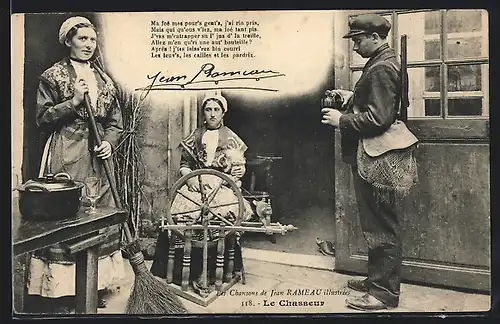 Ma foé mes pour's gens's, j'ai rin pris,
Mais qui qu'ous v'lez, ma foé tant pis
J'vas m'rattraper su l' jus d' la treille,
Allez m'en qu'ri une aut' bouteille !
Après ! j'les laiss'rez bin couri
Les leuv's, les cailles et les pardrix.
Jean Rameau
Les Chansons de Jean RAMEAU illustrées
118. - Le Chasseur